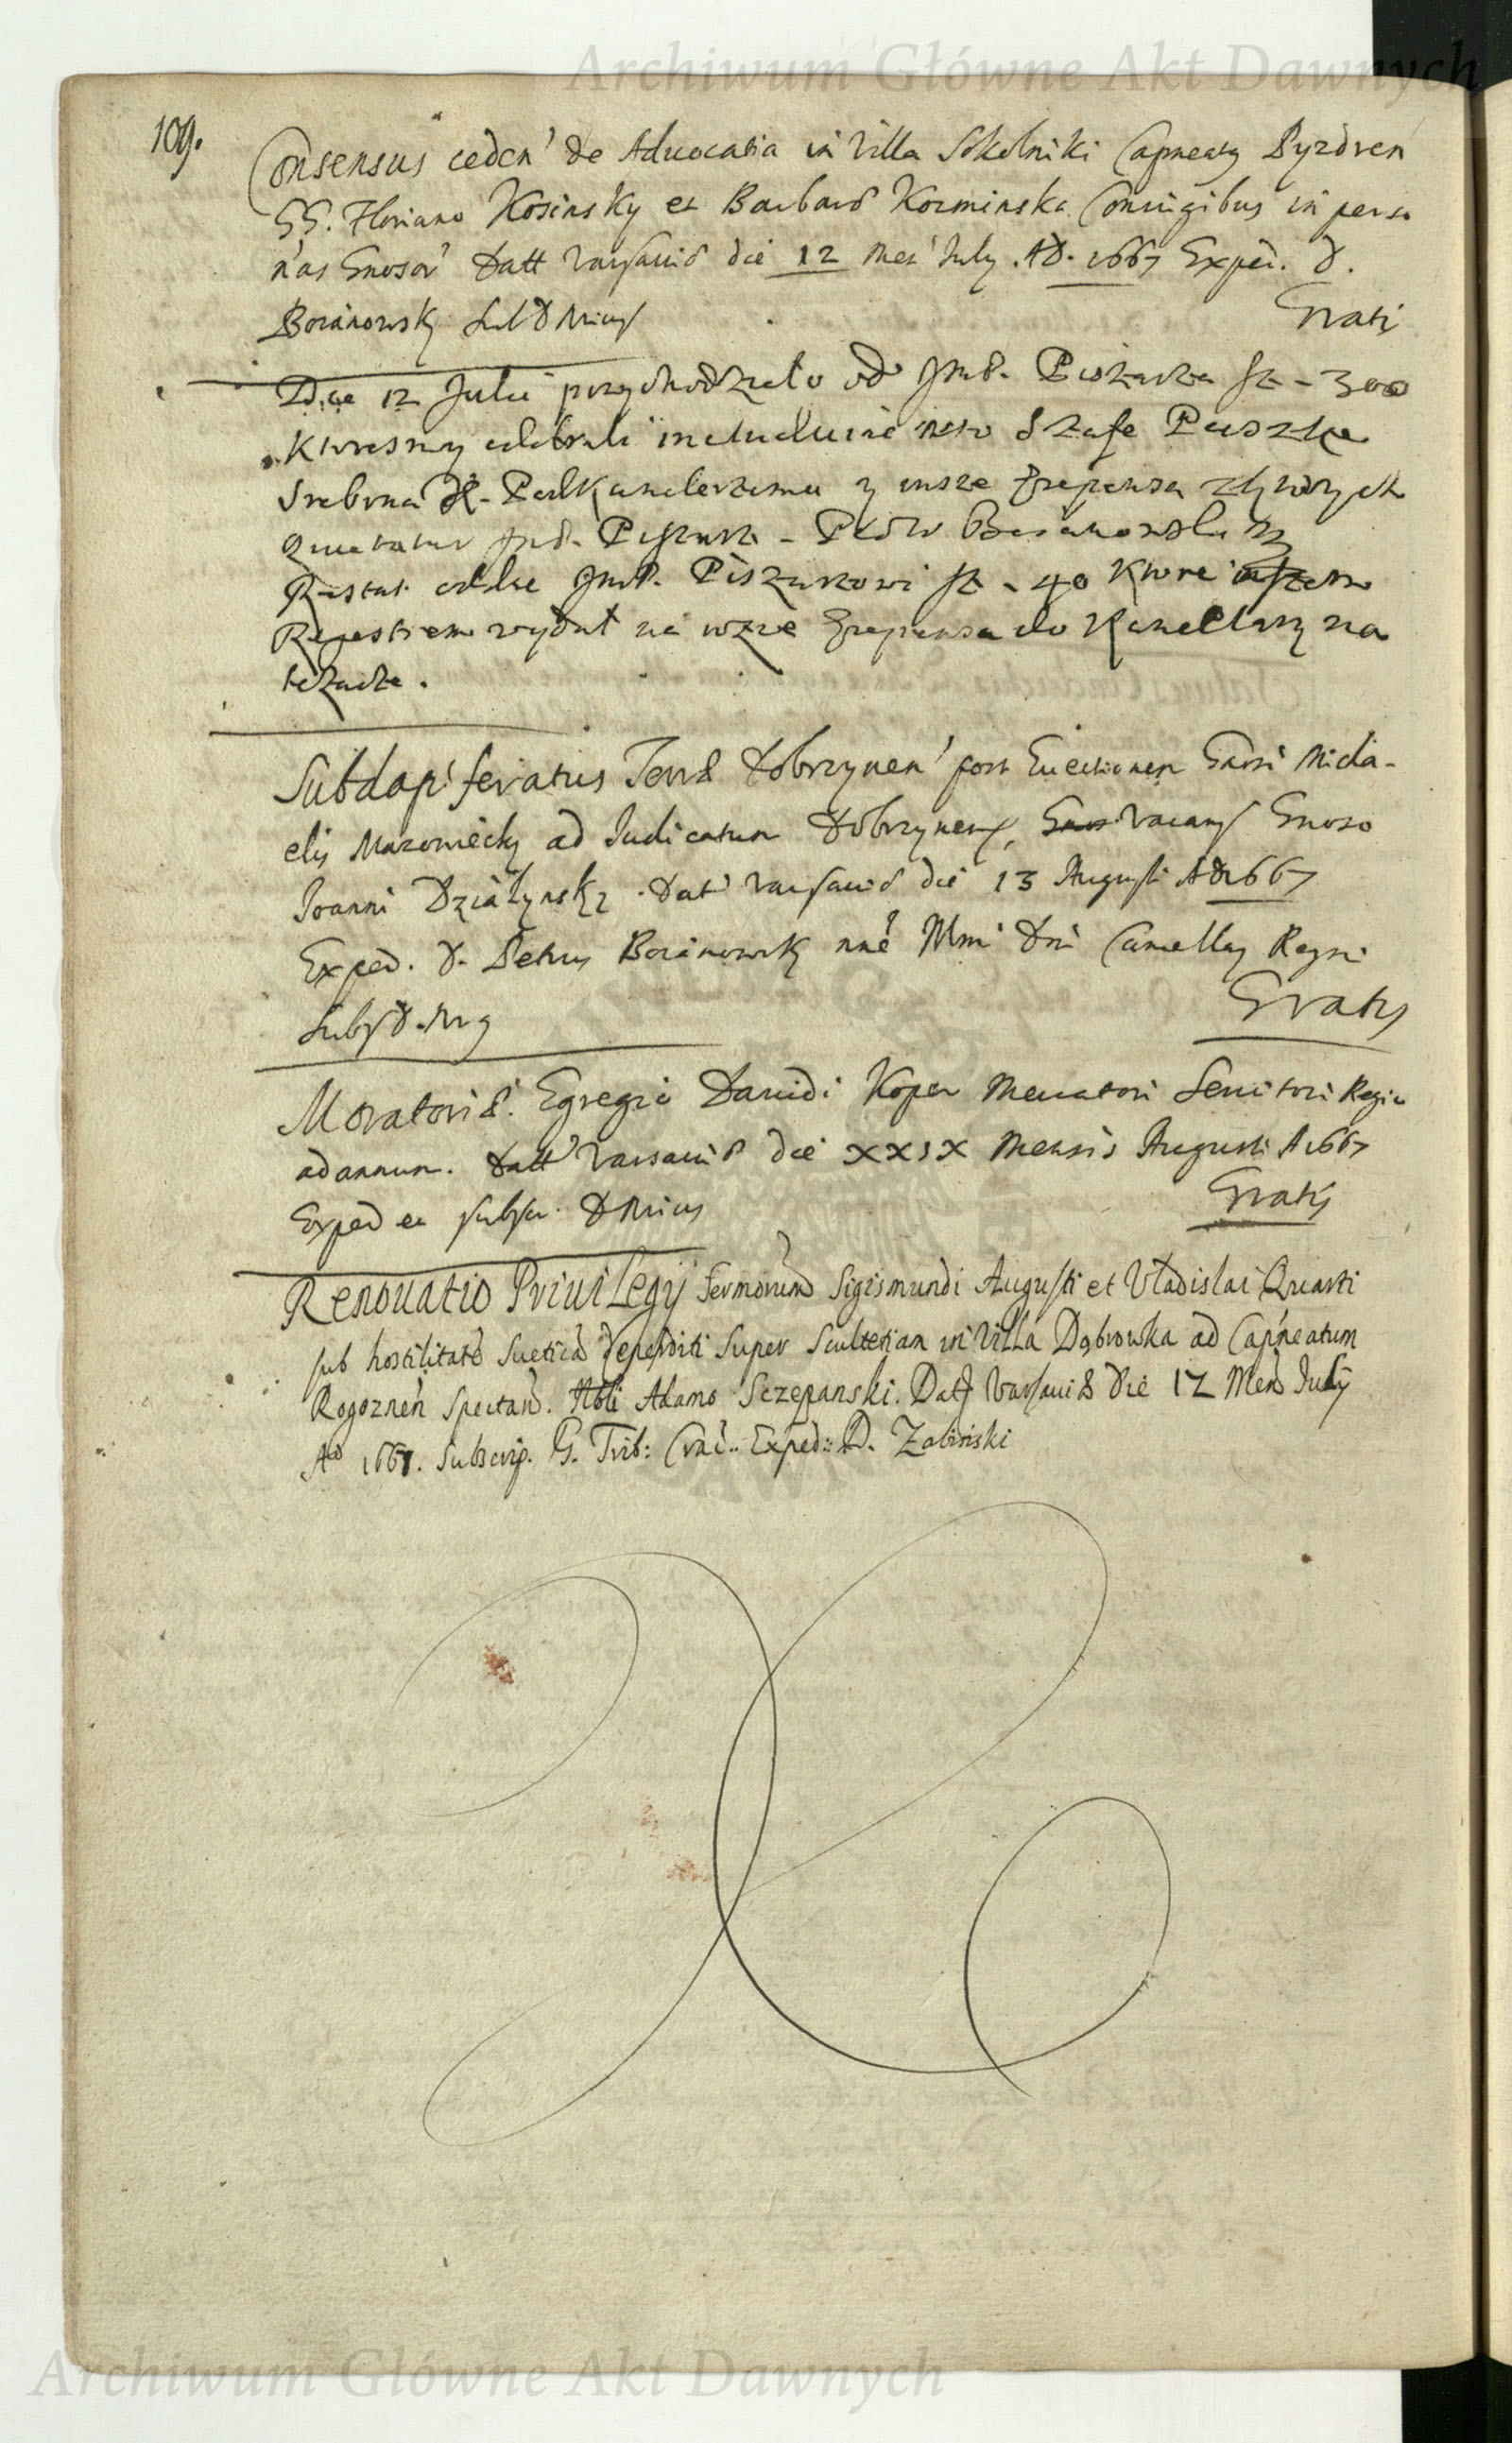 Archiwum Główne Akt Dawnych
109.
Consensus ceden' de Advocatia in Villa Sokolniki Capneatg Pyzdren
GG. Floriano Kosinsky et Barbara Kozminska Coniugibus in perso
nas Gnosor' Datt Varsaviæ die 12 Men' July. AD. 1667 Exped. D.
Boianowsky
Gratis
Die 12 Julii przychodzieło od JmP. Pisarza fl - 300
Ktoresmy odebrali includuiąc w to Szafe Puszkę
Srebrna P. PodKanclerzemu y insze
JmP. Pisarz - Panów Boianowski
Restat odda JmP. Pisarzowi fl - 40 Ktore
Regestrem wydał na do Kancellary na
leząca.
Subdapiferatus Terræ Dobrzynen' post Euectionem Gnosi Micha-
elis Mazowiecky ad Iudicatum Dobrzynens, Vacans Gnoso
Joanni Działynsky. Dat' Varsauiæ die 13 Augusti AD 1667
Exped. D. Petrus Boianowsky Cancellarz Regni
Gratis
Moratoriæ. Egregio Dauidi Koper Mercatori Seruitori Regio
ad annum. Datt' Varsauiæ die XXIX Mensis Augusti A 1667
Exped et subscr. D
Gratis
Renouatio Priuilegij Sermorum Sigismundi Augusti et Vladislai Quarti
sub hostilitate Suetica deperditi Super Scultetiam in Villa Dąbrowka ad Capneatum
Rogoznen Spectan. Nobli Adamo Sczepanski. Datt Varsauiæ Die 12 Mens July
Ao 1667. Subscrip. G. Trib: Crac.. Exped:: D. Zabinski
Archiwum Główne Akt Dawnych